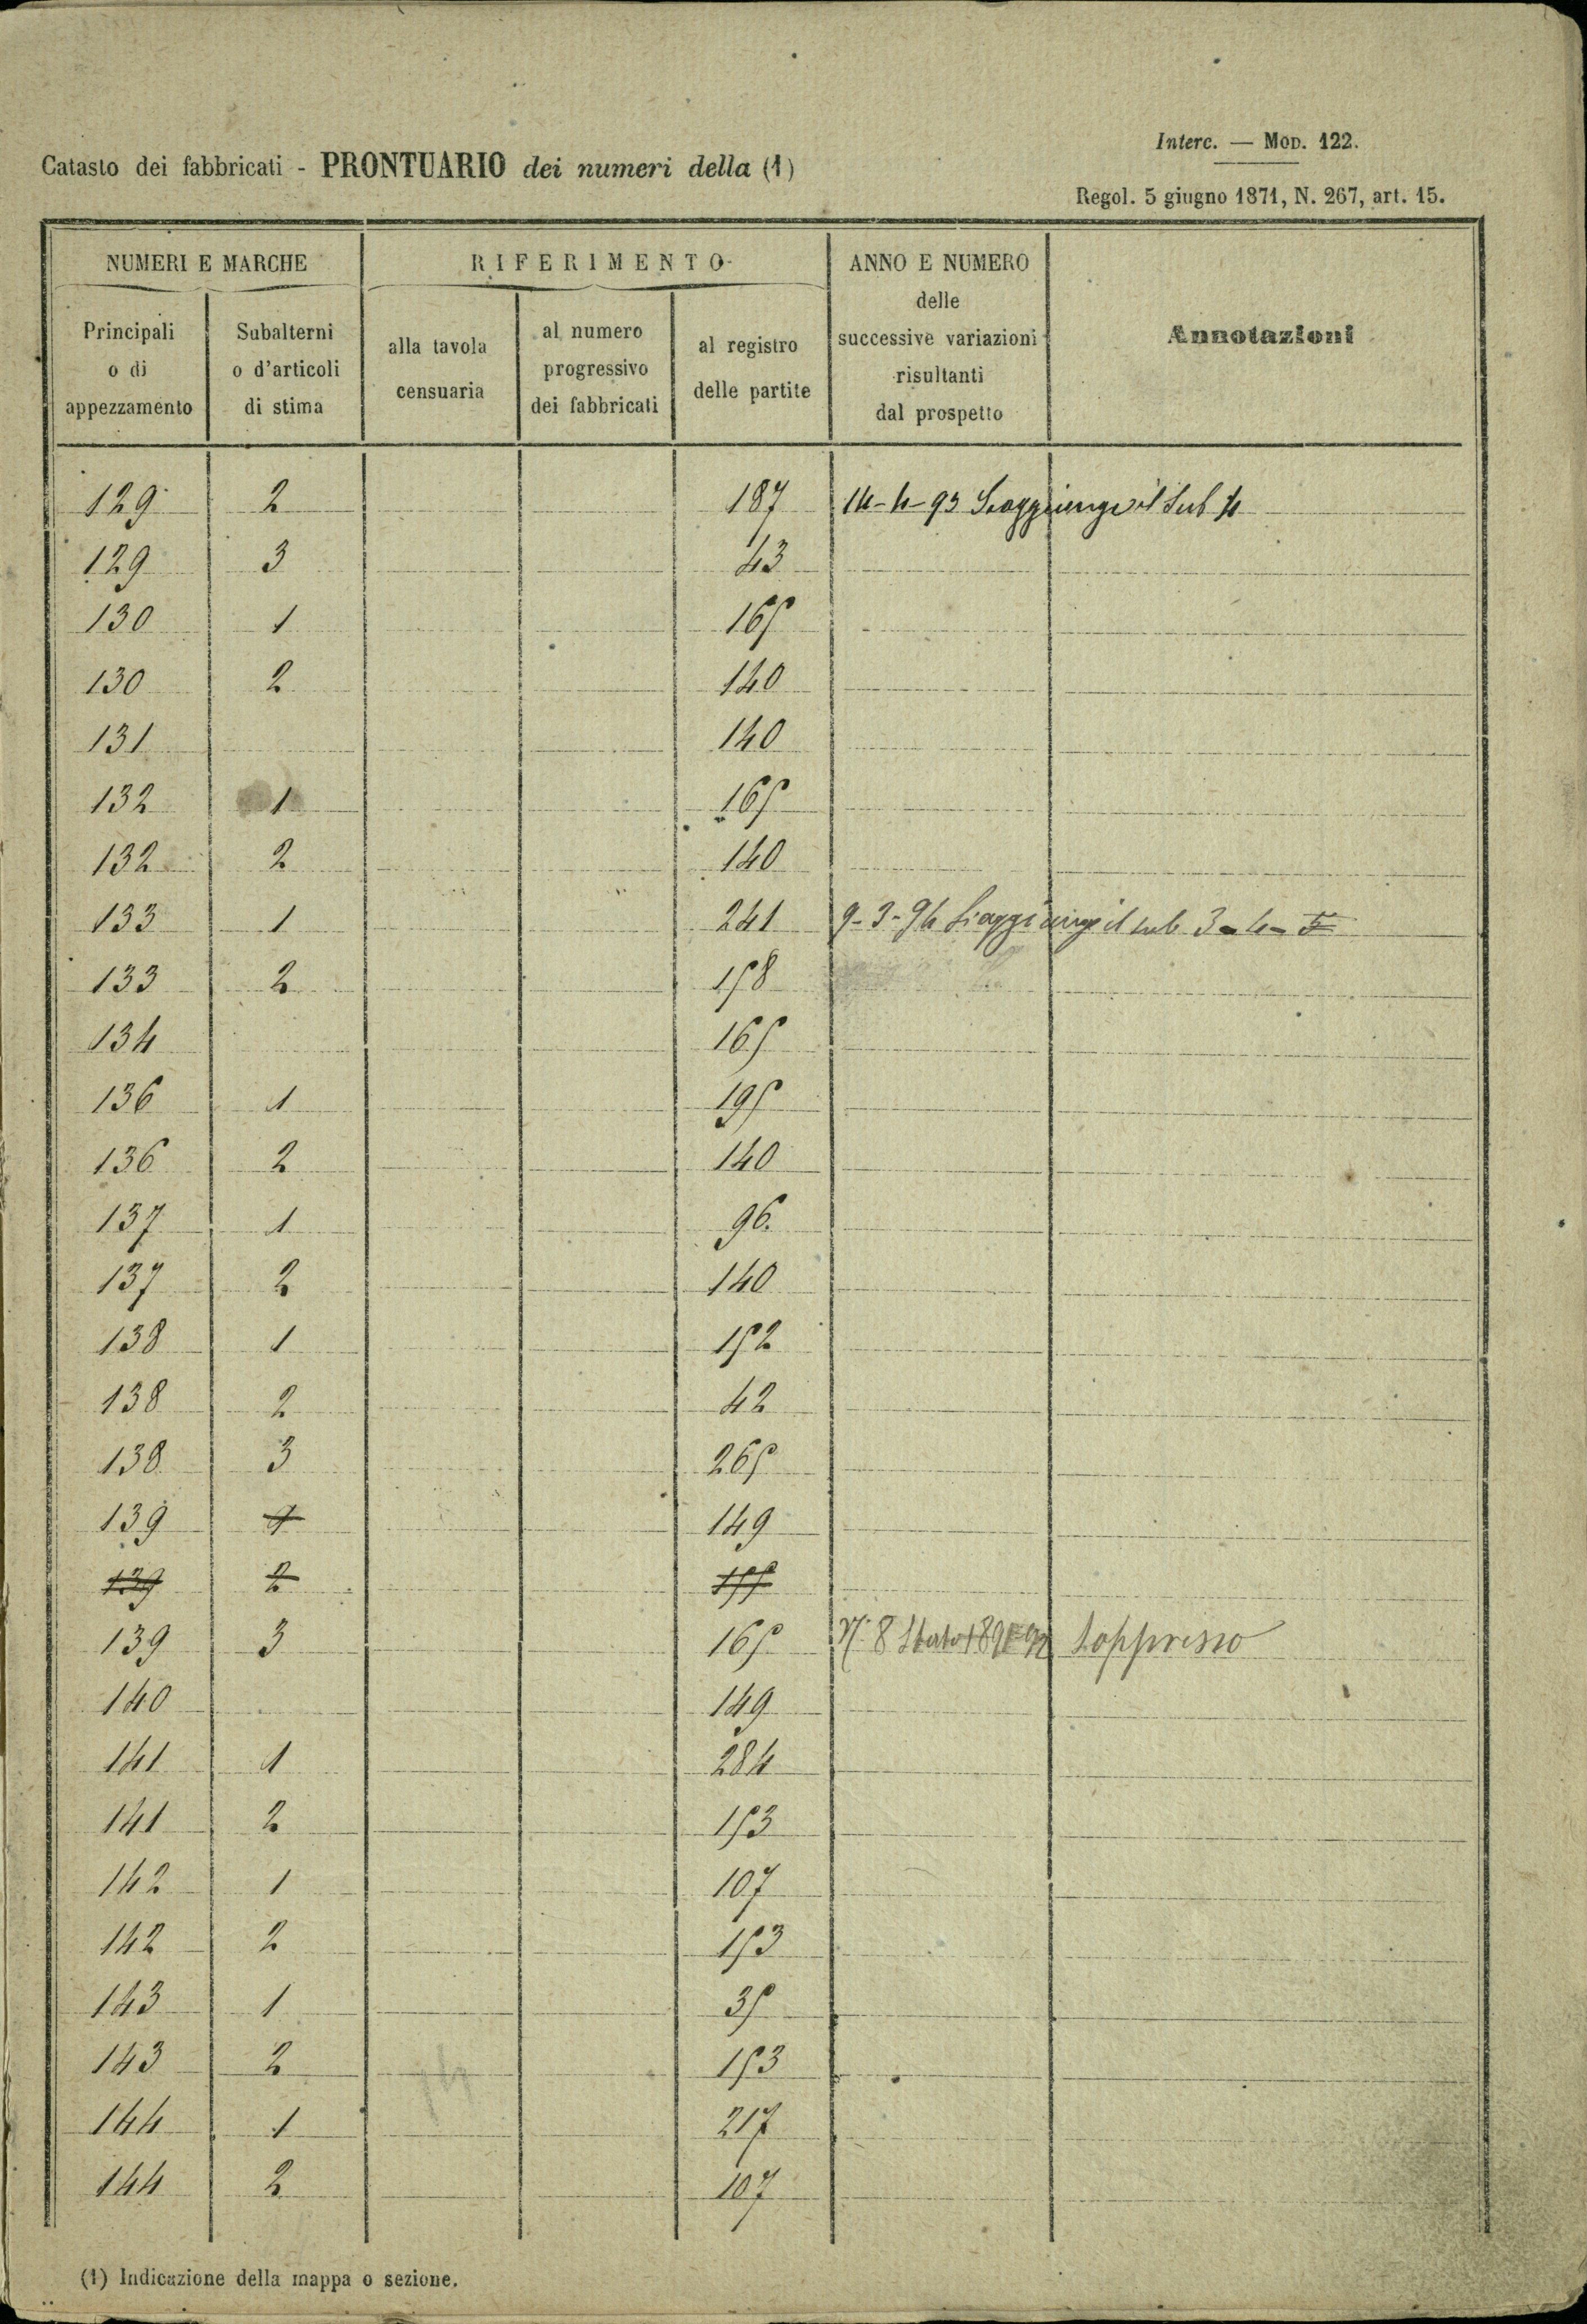 Interc. — Mod. 122.
Catasto dei fabbricati - PRONTUARIO dei numeri della (1)
Regol. 5 giugno 1871, N. 267, art. 15.
NUMERI E MARCHE
RIFERIMENTO
ANNO E NUMERO
delle
successive variazioni
risultanti
dal prospetto
Annotazioni
Principali
o di
appezzamento
Subalterni
o d'articoli
di stima
alla tavola
censuaria
al numero
progressivo
dei fabbricati
al registro
delle partite
129 2 187 14-4-93 Si aggiunge il Sub 4
129 3 43
130 1 165
130 2 140
131 140
132 1 165
132 2 140
133 1 241 9-3-94 Si aggiunge il sub 3-4-5
133 2 158
134 165
136 1 195
136 2 140
137 1 96
137 2 140
138 1 152
138 2 42
138 3 265
139 1 149
139 2 155
139 3 165 N. 8 Stato Soppresso
140 149
141 1 284
141 2 153
142 1 107
142 2 153
143 1 35
143 2 153
144 1 217
144 2 107
(1) Indicazione della mappa o sezione.